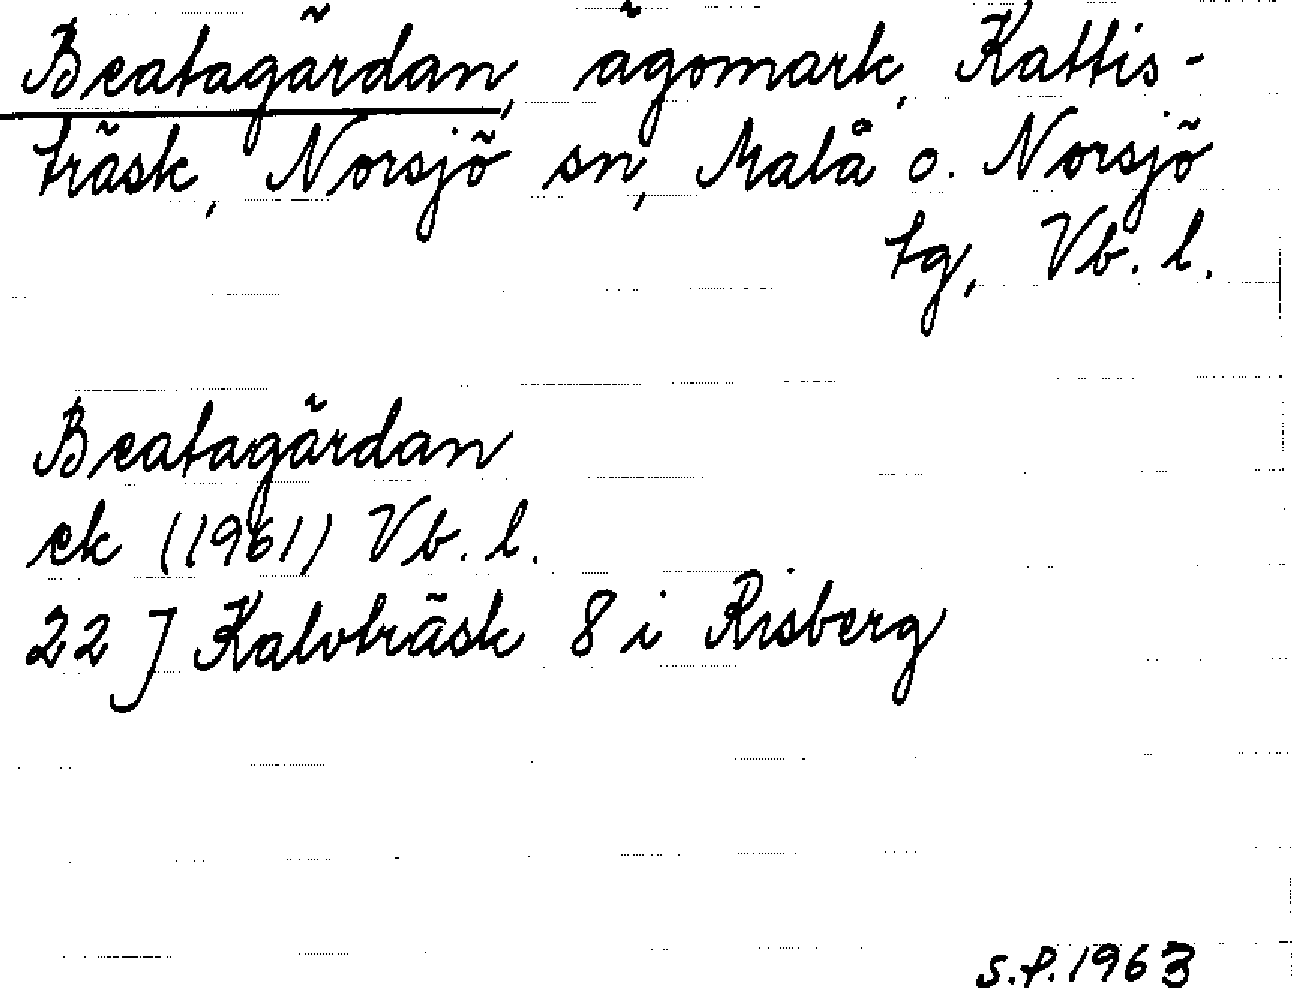 Beatagärdan, ägomark, Kattis-
träsk, Norsjö sn, Malå o. Norsjö
tg, Vb. l.
Beatagärdan
ek (1961) Vb. l.
22 J Kalvträsk 8 i Risberg
S.P. 1963